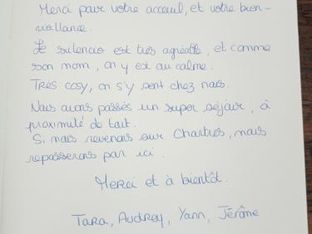 Merci pour votre acceuil, et votre bien-
veillance.
Le silencio est très agréable, et comme
son nom, on y est au calme.
Très cosy, on s'y sent chez nous.
Nous avons passés un super séjour, à
proximité de tout.
Si nous revenons sur Chartres, nous
repasserons par ici.
Merci et à bientôt.
Tara, Audrey, Yann, Jérôme